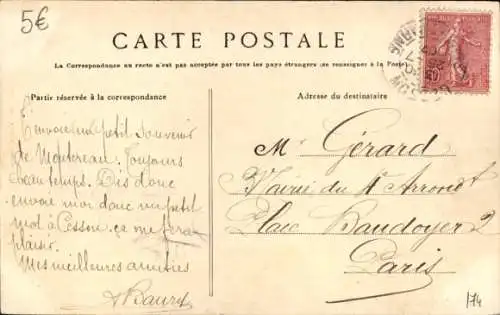 5€
CARTE POSTALE
La Correspondance au recto n'est pas acceptée par tous les pays étrangers (se renseigner à la Poste)
Partie réservée à la correspondance
J'envoie un petit souvenir
de Montereau. Toujours
beau temps. Dis donc
envoie moi donc un petit
mot à Cesson ça me fera
plaisir.
Mes meilleures amitiés
Adresse du destinataire
Mr Gérard
Mairie du 4e Arrondt
Place Baudoyer 2
Paris
174